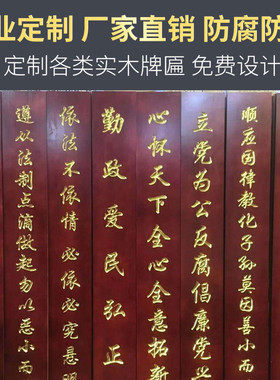 业定制 厂家直销 防腐防
定制各类实木牌匾 免费设计
顺应国律教化子孙莫因善小而
立党为公反腐倡廉党
心怀天下全心全意拓新
勤政爱民弘正
像法不像情必像必究悬明
遵以法制点滴做起勿以恶小而